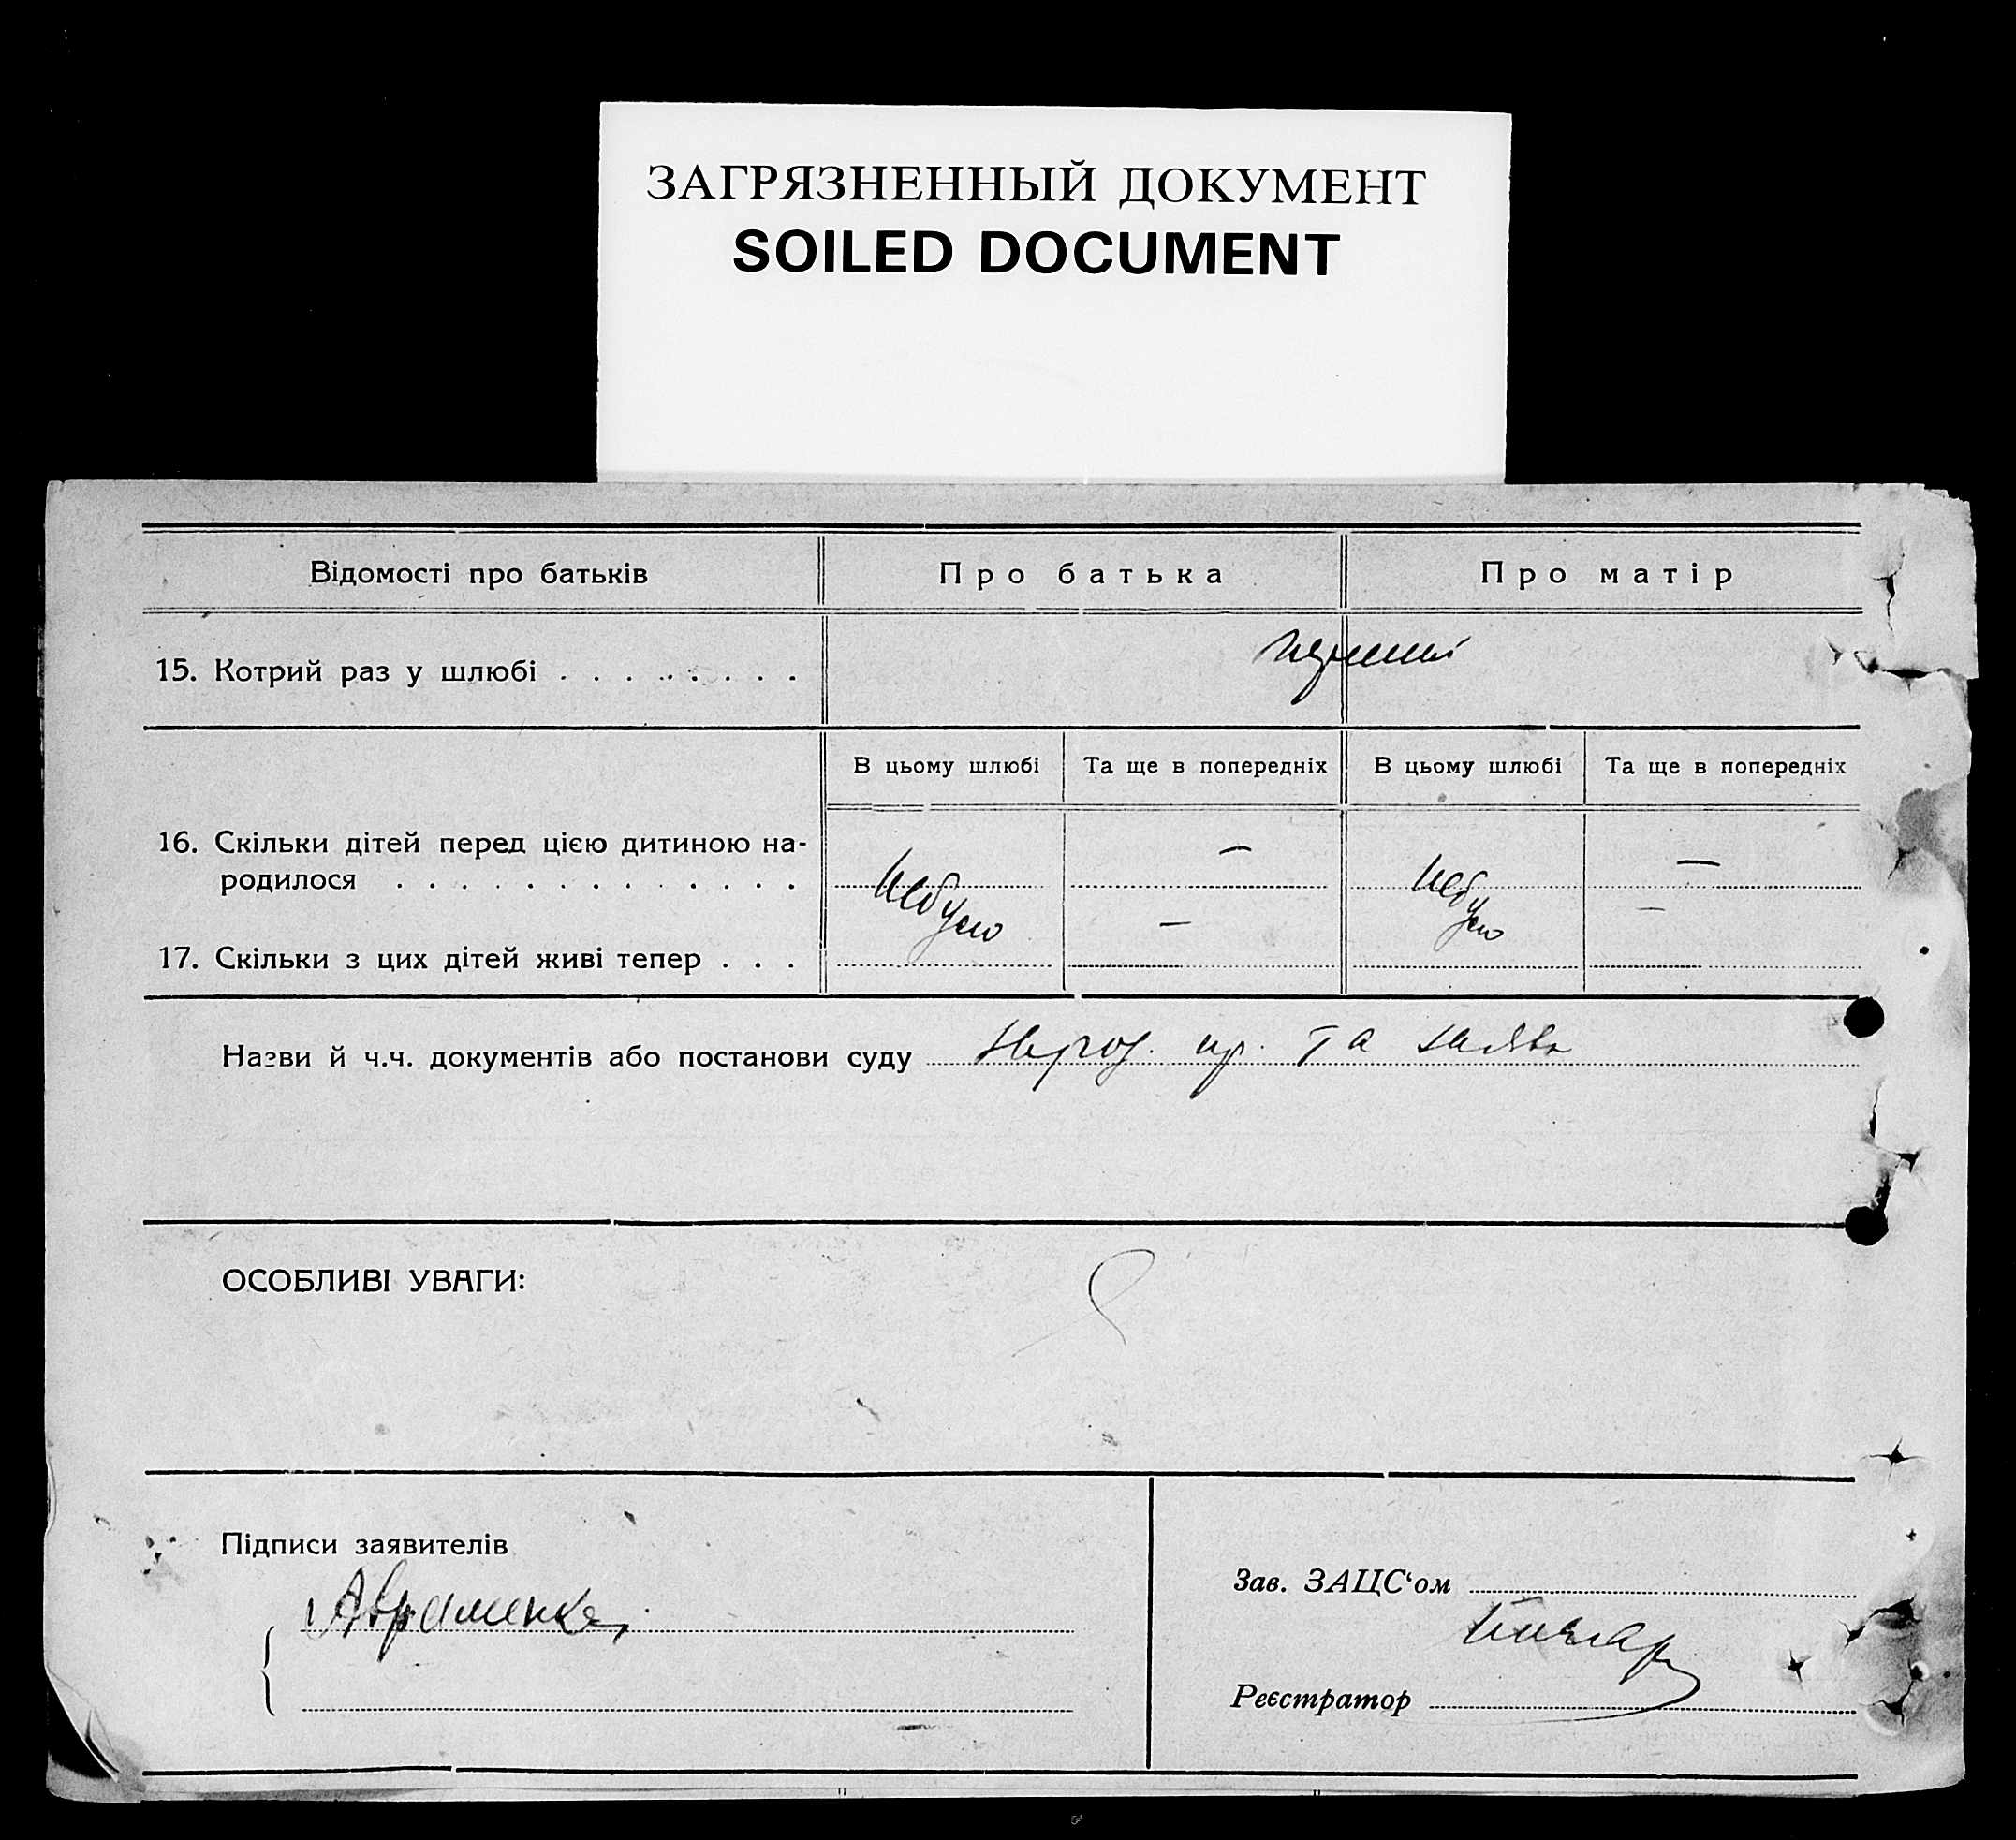 ЗАГРЯЗНЕННЫЙ ДОКУМЕНТ
SOILED DOCUMENT
Відомості про батьків Про батька Про матір
15. Котрий раз у шлюбі . . . . . . . . .
В цьому шлюбі Та ще в попередніх В цьому шлюбі Та ще в попередніх
16. Скільки дітей перед цією дитиною на-
родилося . . . . . . . . . . . . . — —
небуло — небуло —
17. Скільки з цих дітей живі тепер . . .
Назви й ч.ч. документів або постанови суду та заява
ОСОБЛИВІ УВАГИ:
Підписи заявителів
Авраменко
Зав. ЗАЦС‘ом
Реєстратор